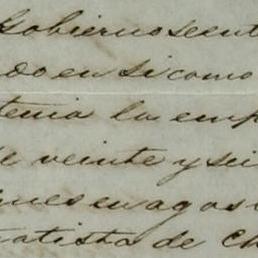 Gobierno se ent
do en si como
tenia la emp
de veinte y sei
ques en agos
ratista de Ch